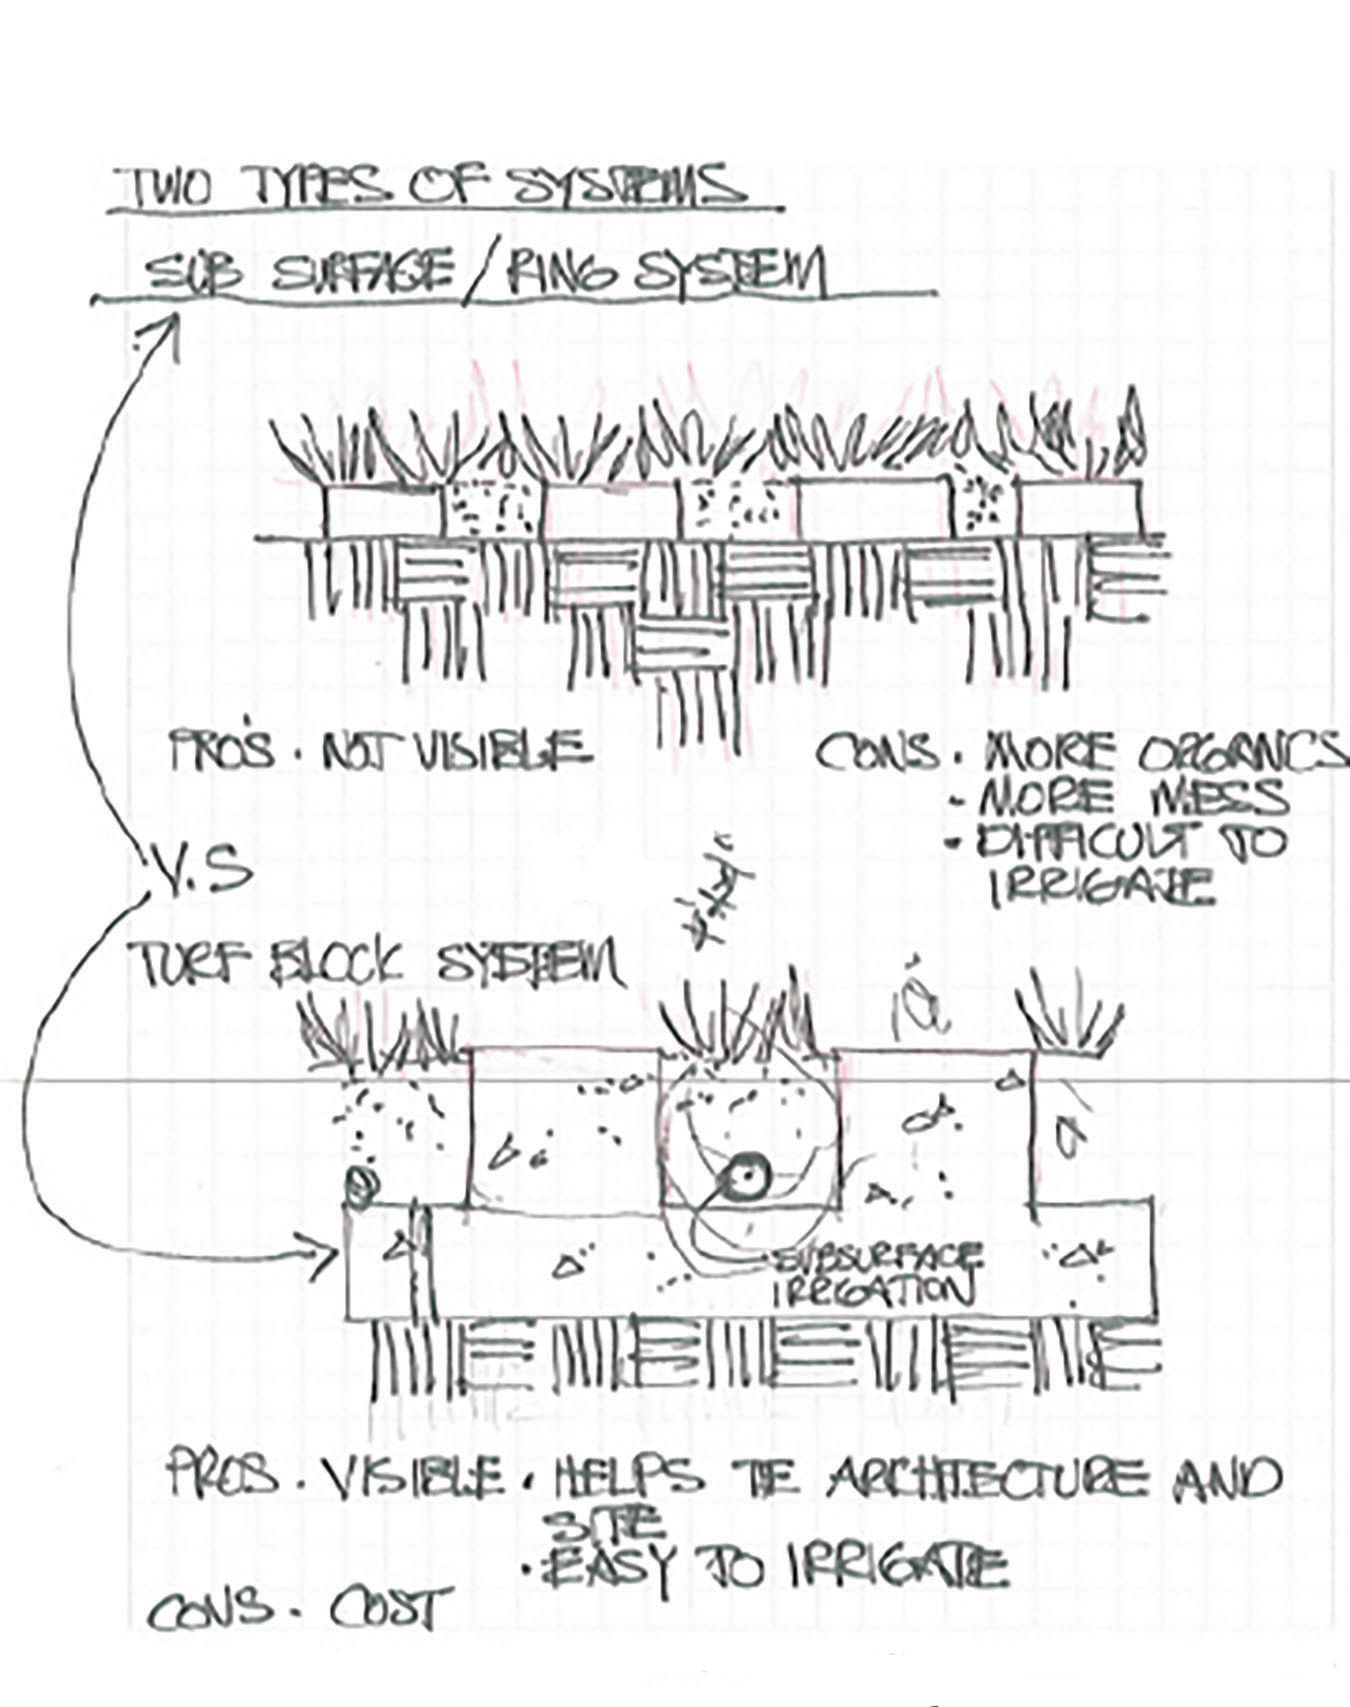 TWO TYPES OF SYSTEMS
SUB SURFACE / RING SYSTEM
PRO'S · NOT VISIBLE
CONS · MORE ORGANICS
· MORE MESS
· DIFFICULT TO
IRRIGATE
V.S
TURF BLOCK SYSTEM
SUBSURFACE
IRRIGATION
PROS · VISIBLE · HELPS TIE ARCHITECTURE AND
SITE
· EASY TO IRRIGATE
CONS · COST